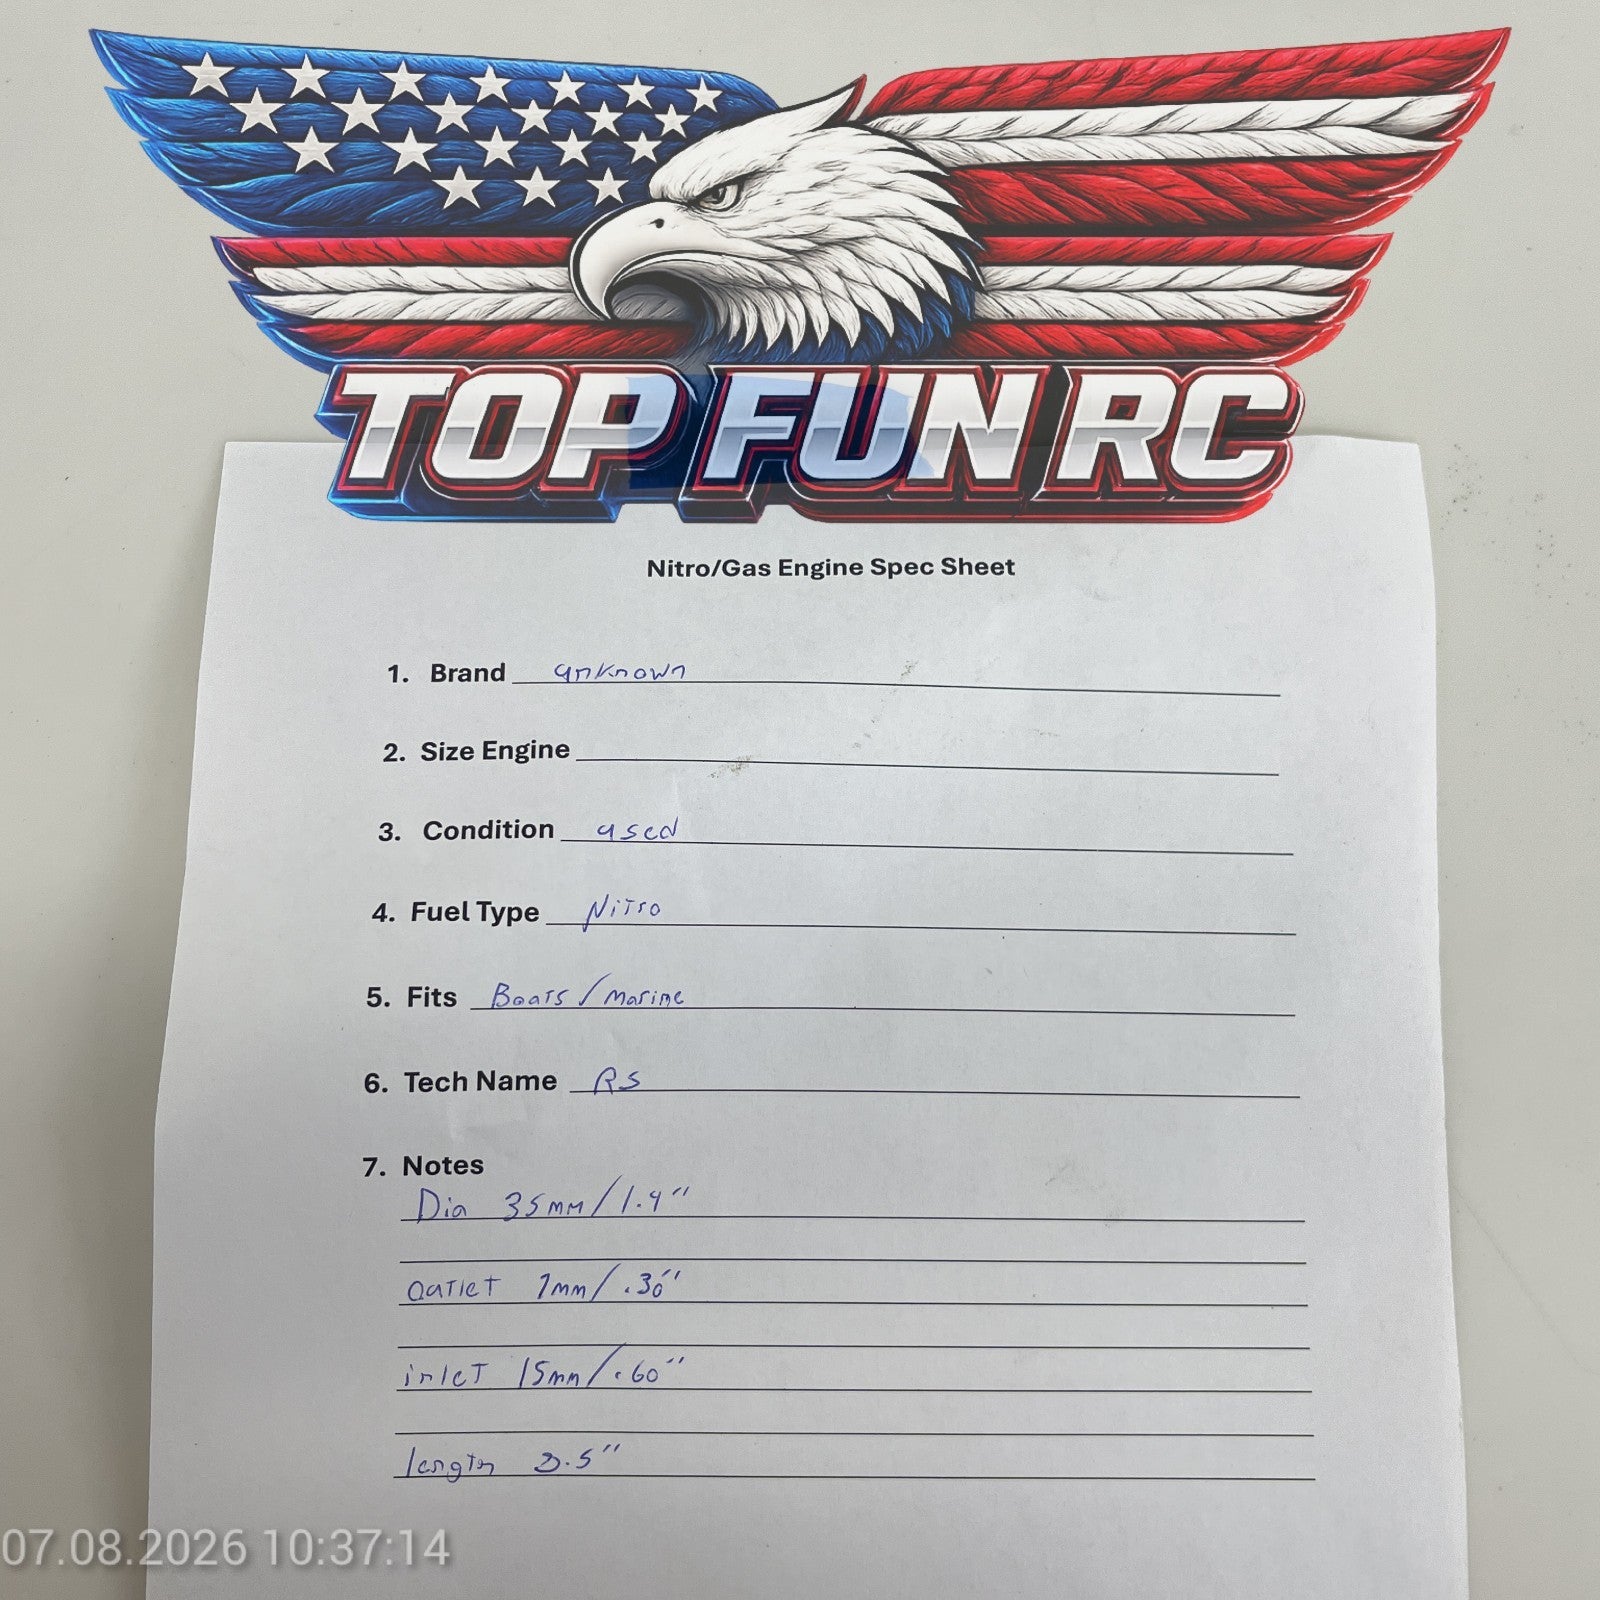 TOP FUN RC
Nitro/Gas Engine Spec Sheet
1. Brand unknown
2. Size Engine
3. Condition used
4. Fuel Type Nitro
5. Fits Boats/marine
6. Tech Name RS
7. Notes
Dia 35mm/1.4"
outlet 7mm/.30"
inlet 15mm/.60"
length 3.5"
07.08.2026 10:37:14